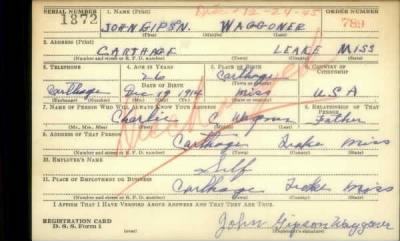 SERIAL NUMBER 1. NAME (Print) 12-24-45 ORDER NUMBER
1372 JOHN GIPSN. WAGGONER 789
(First) (Middle) (Last)
2. ADDRESS (Print)
CARTHAGE LEAKE MISS
(Number and street or R. F. D. number) (Town) (County) (State)
3. TELEPHONE 4. AGE IN YEARS 5. PLACE OF BIRTH 6. COUNTRY OF CITIZENSHIP
26 Carthage
DATE OF BIRTH
Carthage Dec 19 1914 Miss U S A
(Exchange) (Number) (Mo.) (Day) (Yr.) (State or country)
7. NAME OF PERSON WHO WILL ALWAYS KNOW YOUR ADDRESS 8. RELATIONSHIP OF THAT PERSON
Charlie C. Wagoner Father
(Mr., Mrs., Miss) (First) (Middle) (Last)
9. ADDRESS OF THAT PERSON
Carthage Leake Miss
(Number and street or R. F. D. number) (Town) (County) (State)
10. EMPLOYER'S NAME
Self
11. PLACE OF EMPLOYMENT OR BUSINESS
Carthage Leake Miss
(Number and street or R. F. D. number) (Town) (County) (State)
I AFFIRM THAT I HAVE VERIFIED ABOVE ANSWERS AND THAT THEY ARE TRUE.
REGISTRATION CARD
D. S. S. Form 1
John Gipson Waggoner